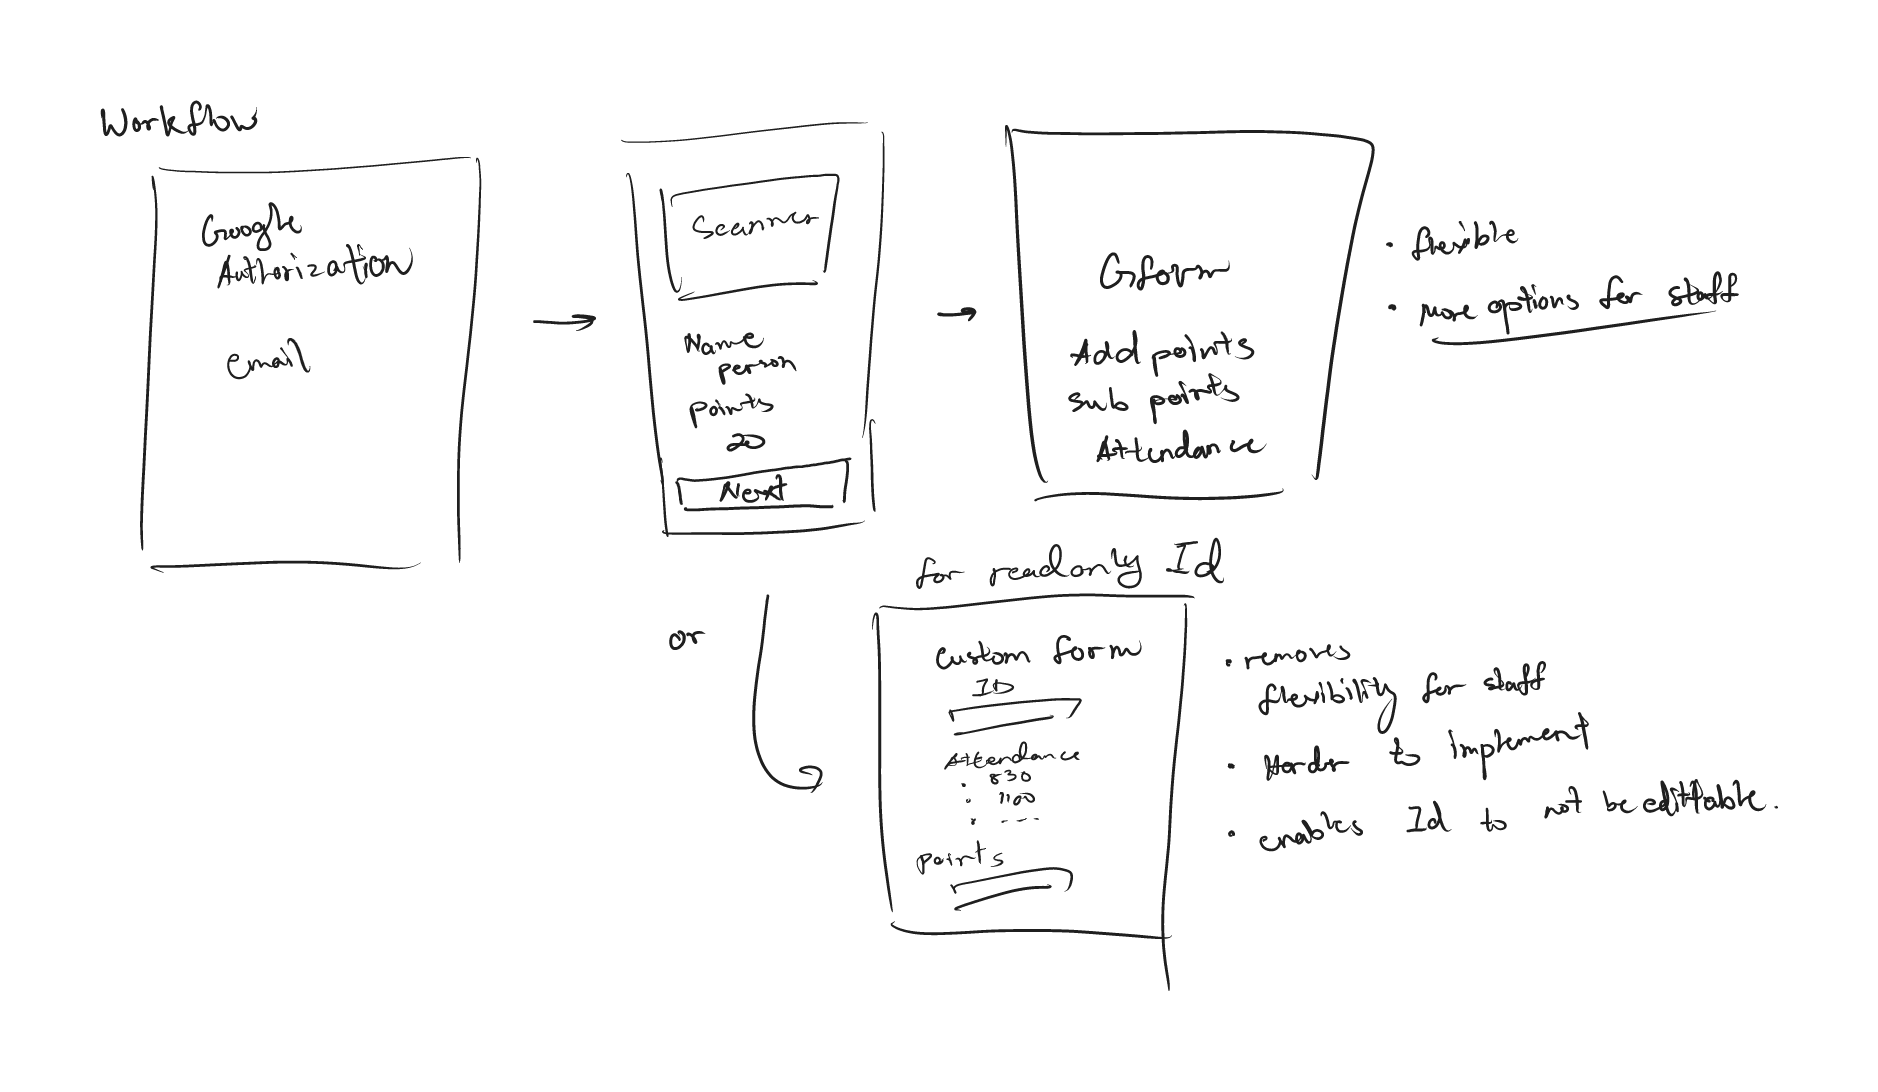 Workflow
Google
Authorization
email
Scanner
Name
person
points
20
Next
Gform
Add points
sub points
Attendance
• flexible
• more options for staff
or
for readonly Id
Custom form
ID
Attendance
• 830
• 1100
• ---
points
• removes
flexibility for staff
• Harder to implement
• enables Id to not be edittable.